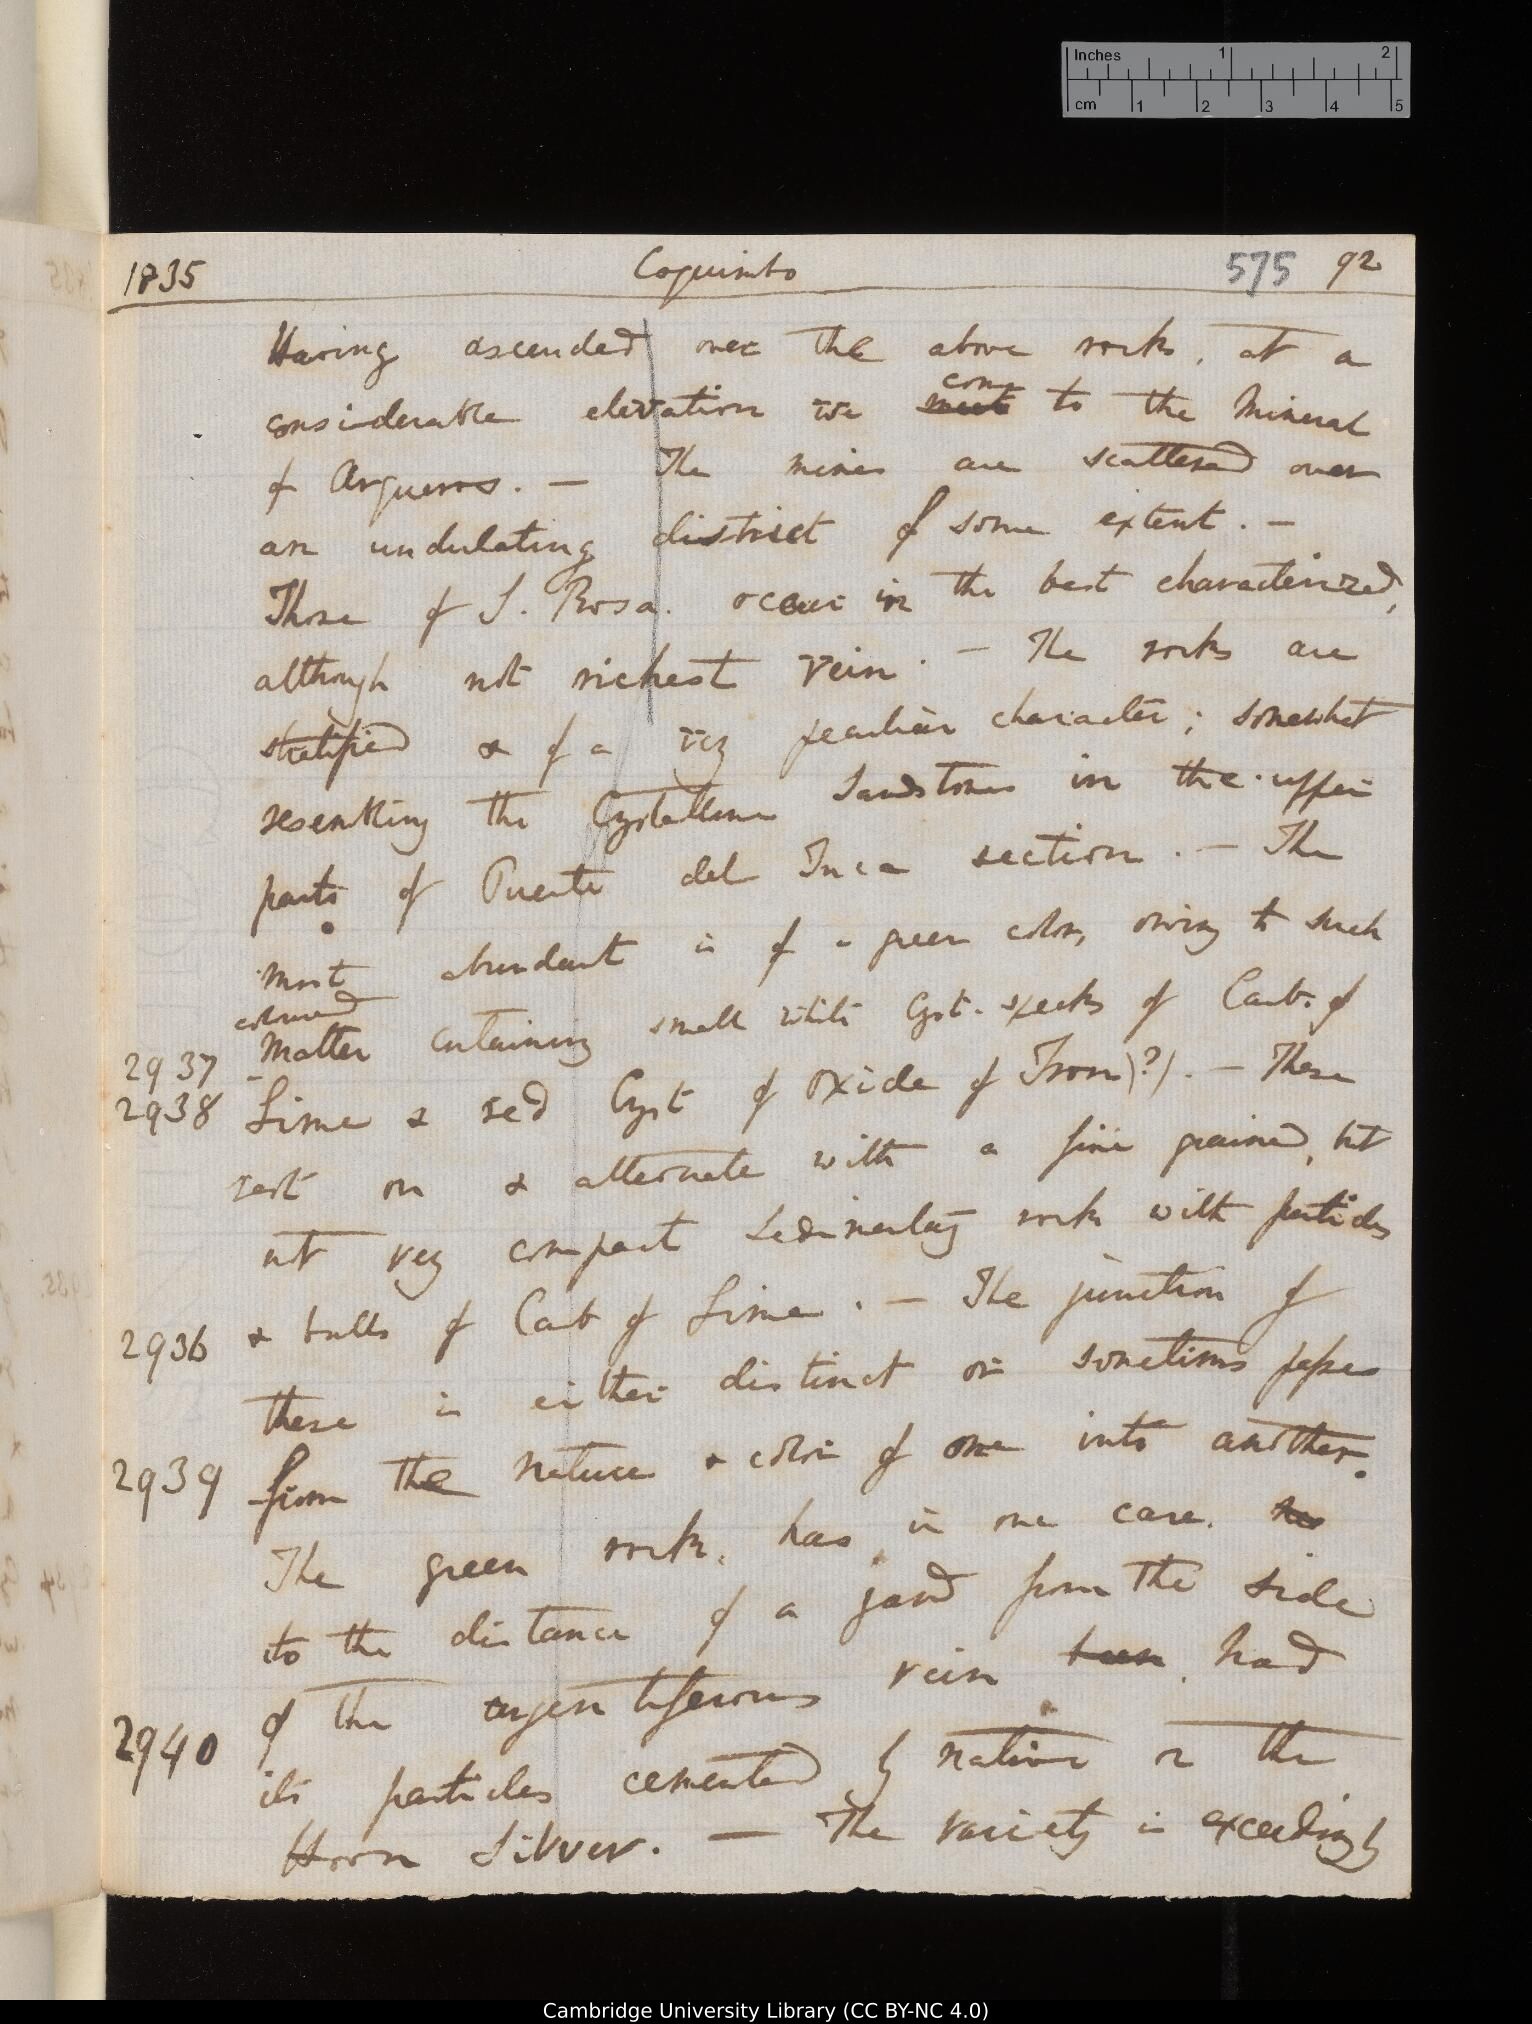 Inches 1 2
cm 1 2 3 4 5
1835 Coquimbo 575 92
Having ascended over the above rocks, at a
considerable elevation we meet come to the Mineral
of Arqueros. — The mines are scattered over
an undulating district of some extent. —
Those of S. Rosa. occur in the best characterized,
although not richest vein. — The rocks are
stratified & of a very peculiar character; somewhat
resembling the Crystalline Sandstones in the upper
parts of Puente del Inca section. — The
most abundant is of a green color, owing to such
coloured
2937 Matter containing small white Cryst. specks of Carb. of
2938 Lime & red Cryst of Oxide of Iron (?). — These
rest on & alternate with a fine grained, but
not very compact Sedimentary rock with particles
2936 & balls of Carb of Lime. — The junction of
these is either distinct or sometimes passes
2939 from the nature & color of one into another.
The green rock, has in one case, has
to the distance of a yard from the side
of the argentiferous vein been, had
2940 its particles cemented by native or the
Horn Silver. — The variety is exceedingly
Cambridge University Library (CC BY-NC 4.0)